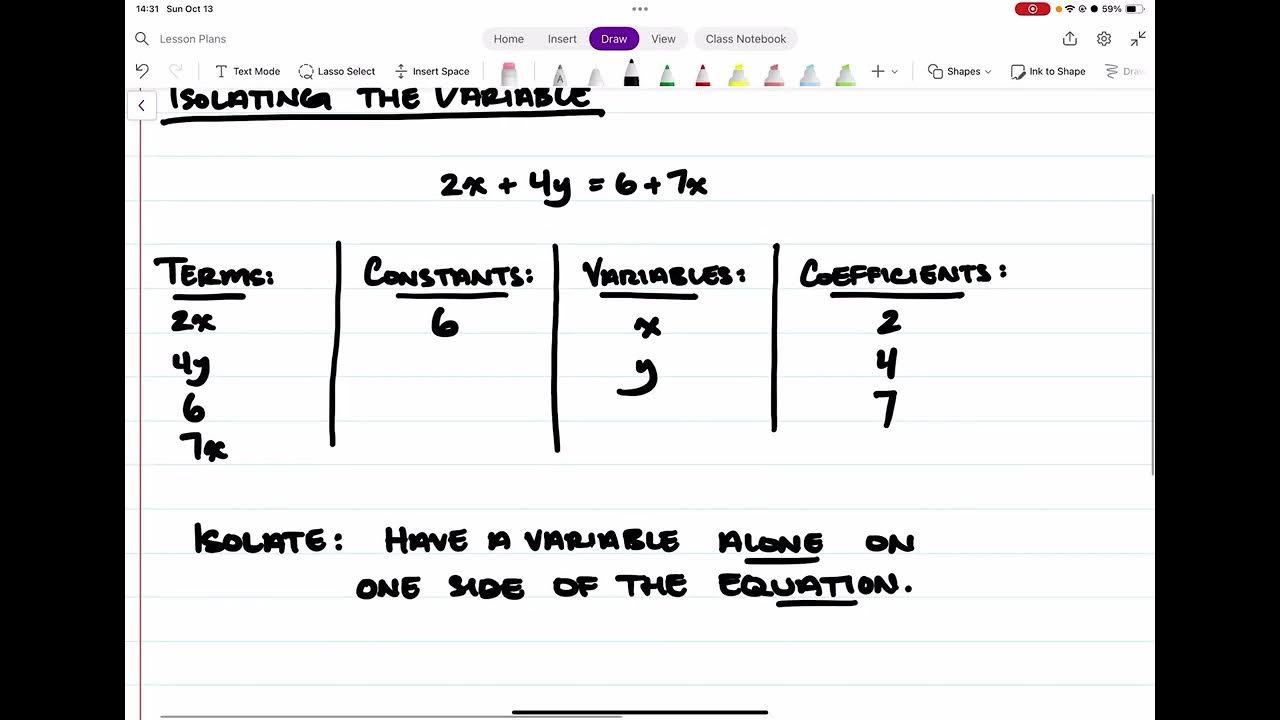 14:31 Sun Oct 13
59%
Lesson Plans
Home Insert Draw View Class Notebook
Text Mode Lasso Select Insert Space Shapes Ink to Shape Draw
ISOLATING THE VARIABLE
2x + 4y = 6 + 7x
TERMS: CONSTANTS: VARIABLES: COEFFICIENTS:
2x 6 x 2
4y y 4
6 7
7x
ISOLATE: HAVE A VARIABLE ALONE ON
ONE SIDE OF THE EQUATION.